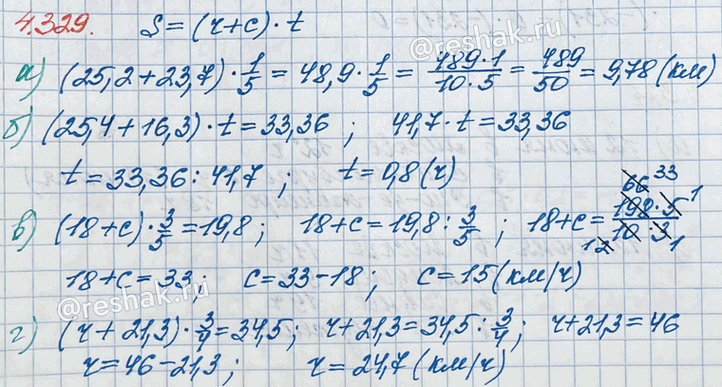 4.329. S = (r + c) · t
а) (25,2 + 23,7) · 1/5 = 48,9 · 1/5 = 489·1/10·5 = 489/50 = 9,78 (км)
б) (25,4 + 16,3) · t = 33,36 ; 41,7 · t = 33,36
t = 33,36 : 41,7 ; t = 0,8 (ч)
66 33
в) (18 + c) · 3/5 = 19,8 ; 18 + c = 19,8 : 3/5 ; 18 + c = 198 · 5 1/12 10 · 3 1
18 + c = 33 ; c = 33 – 18 ; c = 15 (км/ч)
г) (r + 21,3) · 3/4 = 34,5 ; r + 21,3 = 34,5 : 3/4 ; r + 21,3 = 46
r = 46 – 21,3 ; r = 24,7 (км/ч)
@reshak.ru
@reshak.ru
@reshak.ru